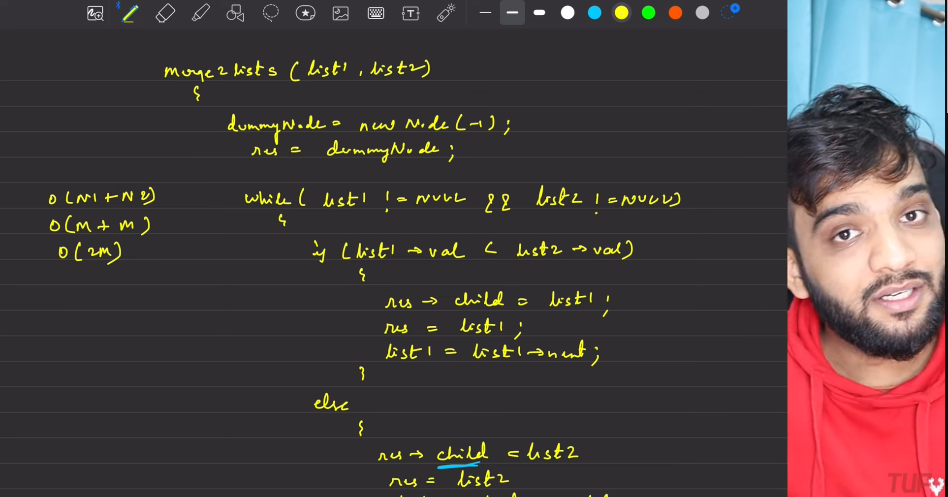 merge2lists (list1, list2)
{
dummyNode = new Node(-1);
res = dummyNode;
O(N1+N2)
while( list1 != NULL && list2 != NULL)
{
O(M+M)
O(2M)
if (list1 → val < list2 → val)
{
res → child = list1;
res = list1;
list1 = list1 → next;
}
else
{
res → child = list2
res = list2
TUF